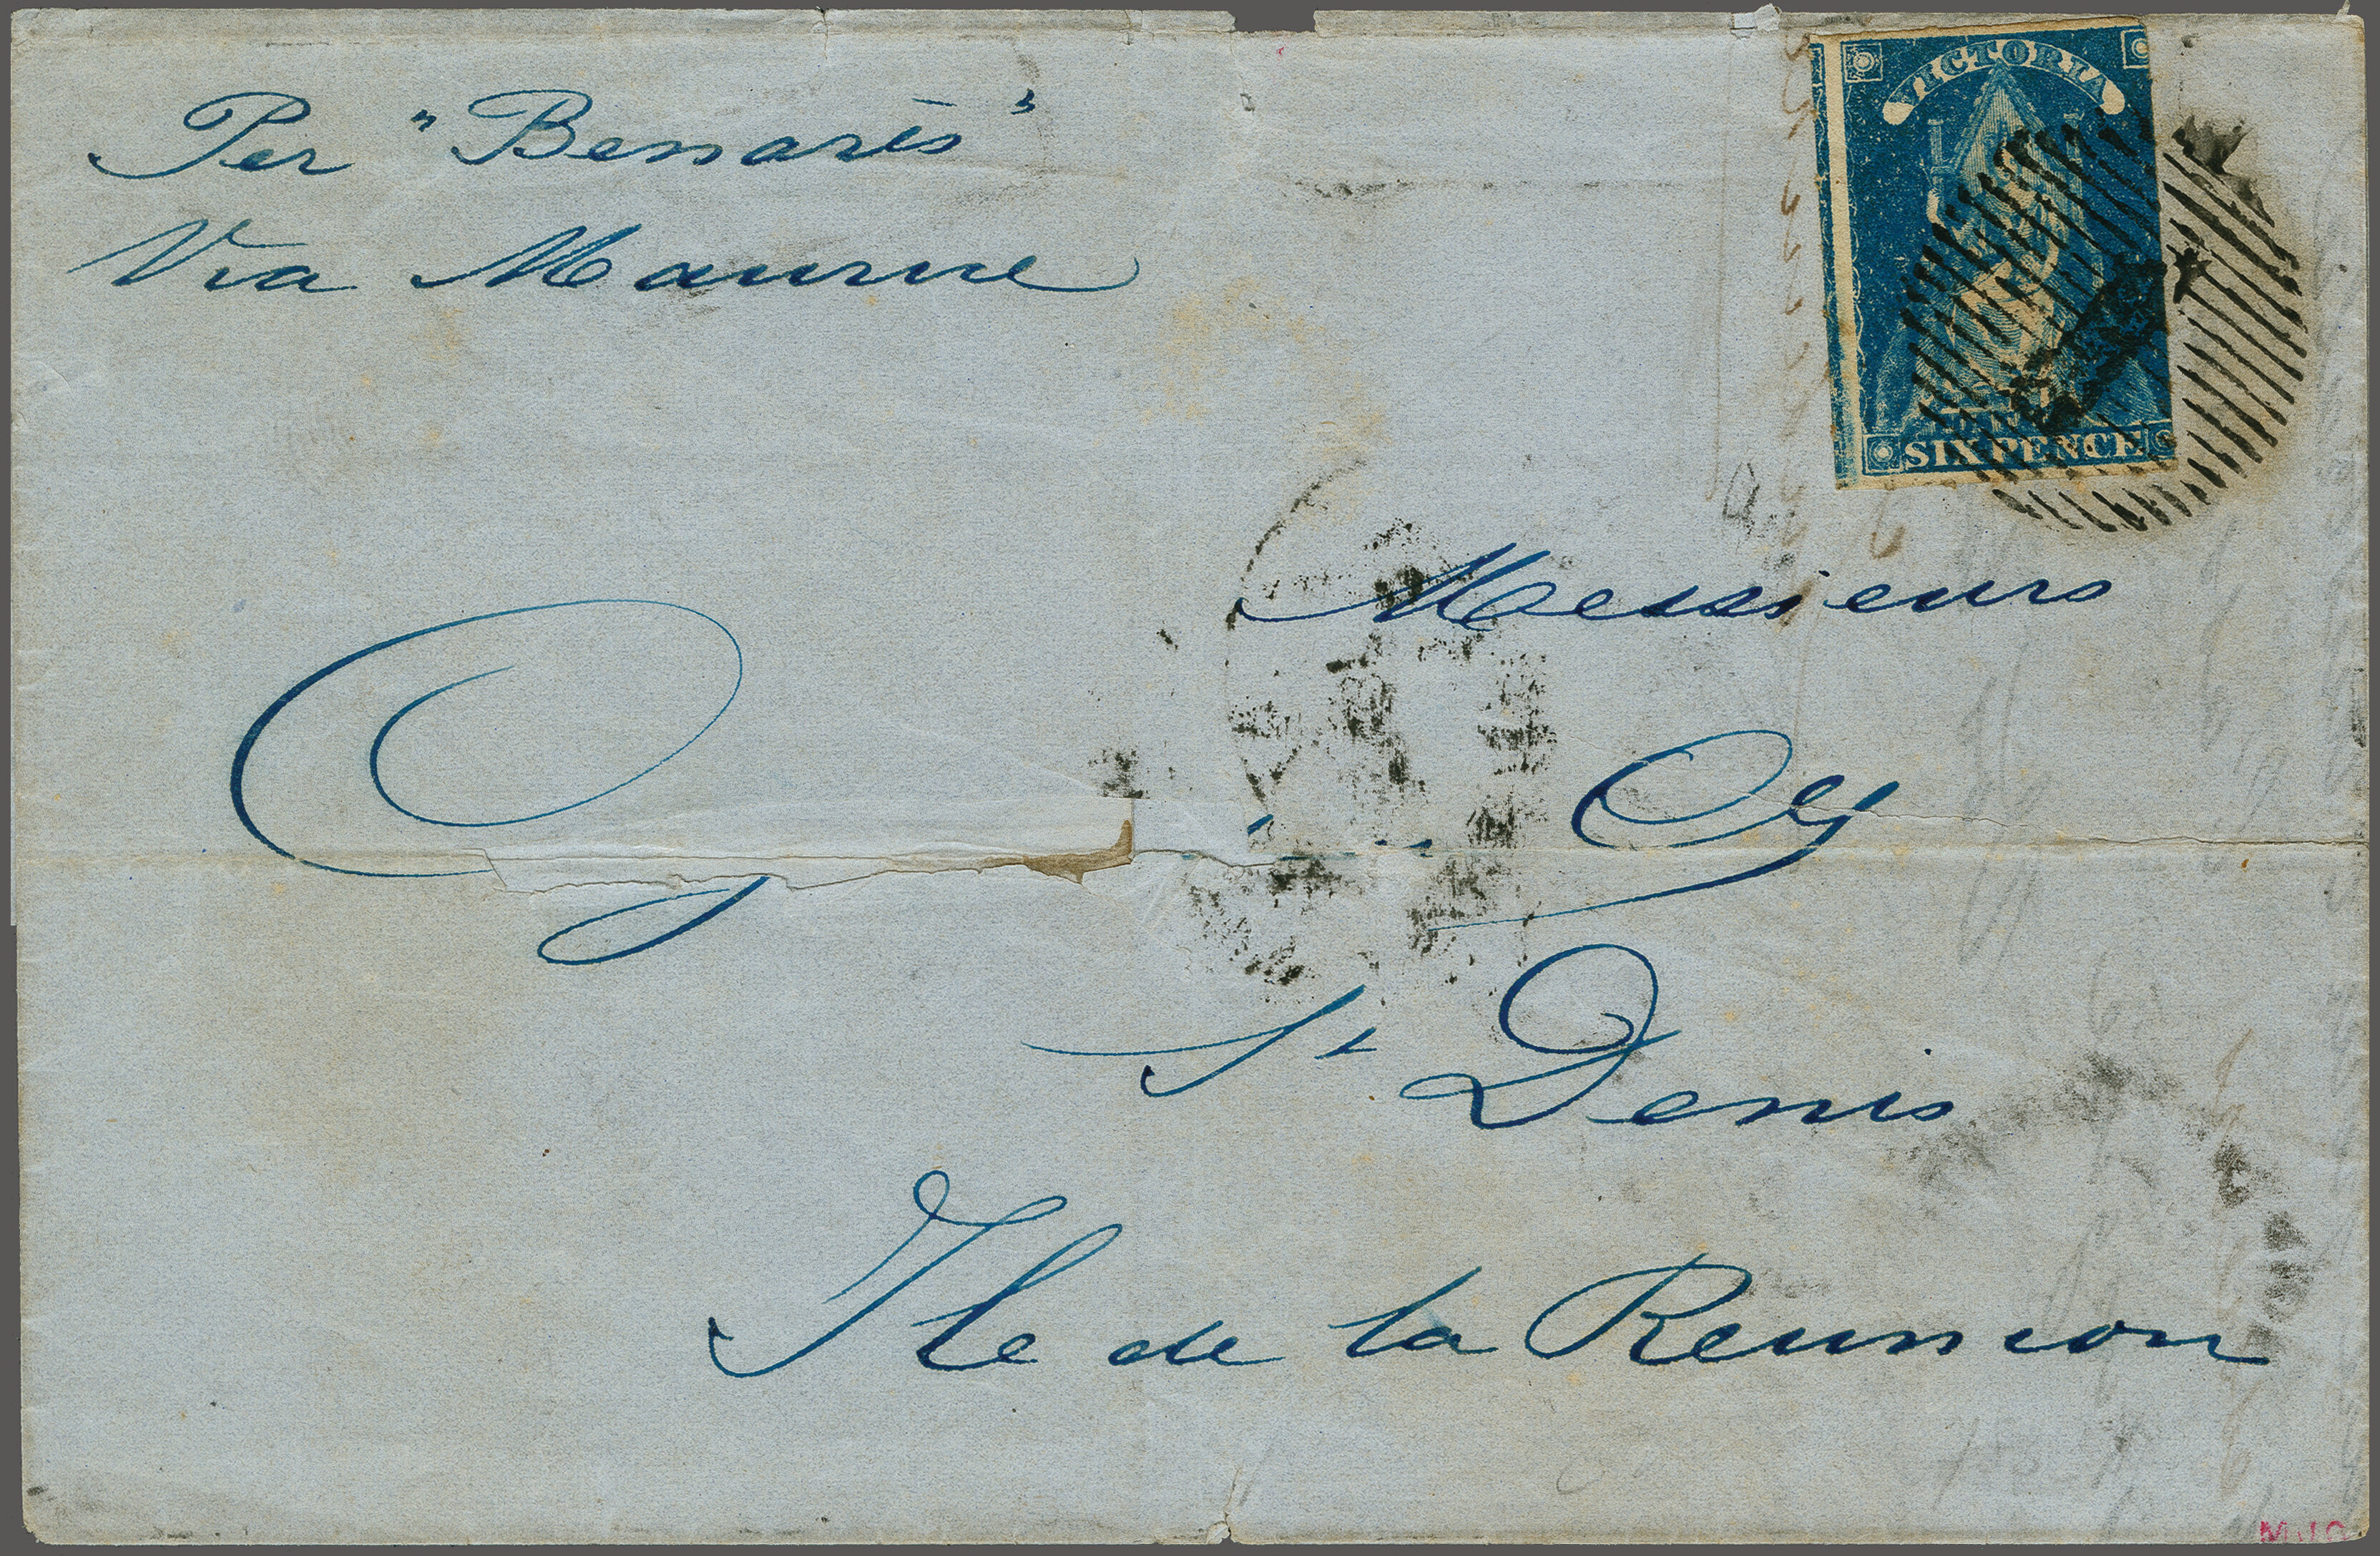 Per "Benarès"
Via Maurice
VICTORIA
SIXPENCE
Messieurs
St Denis
Ile de la Reunion